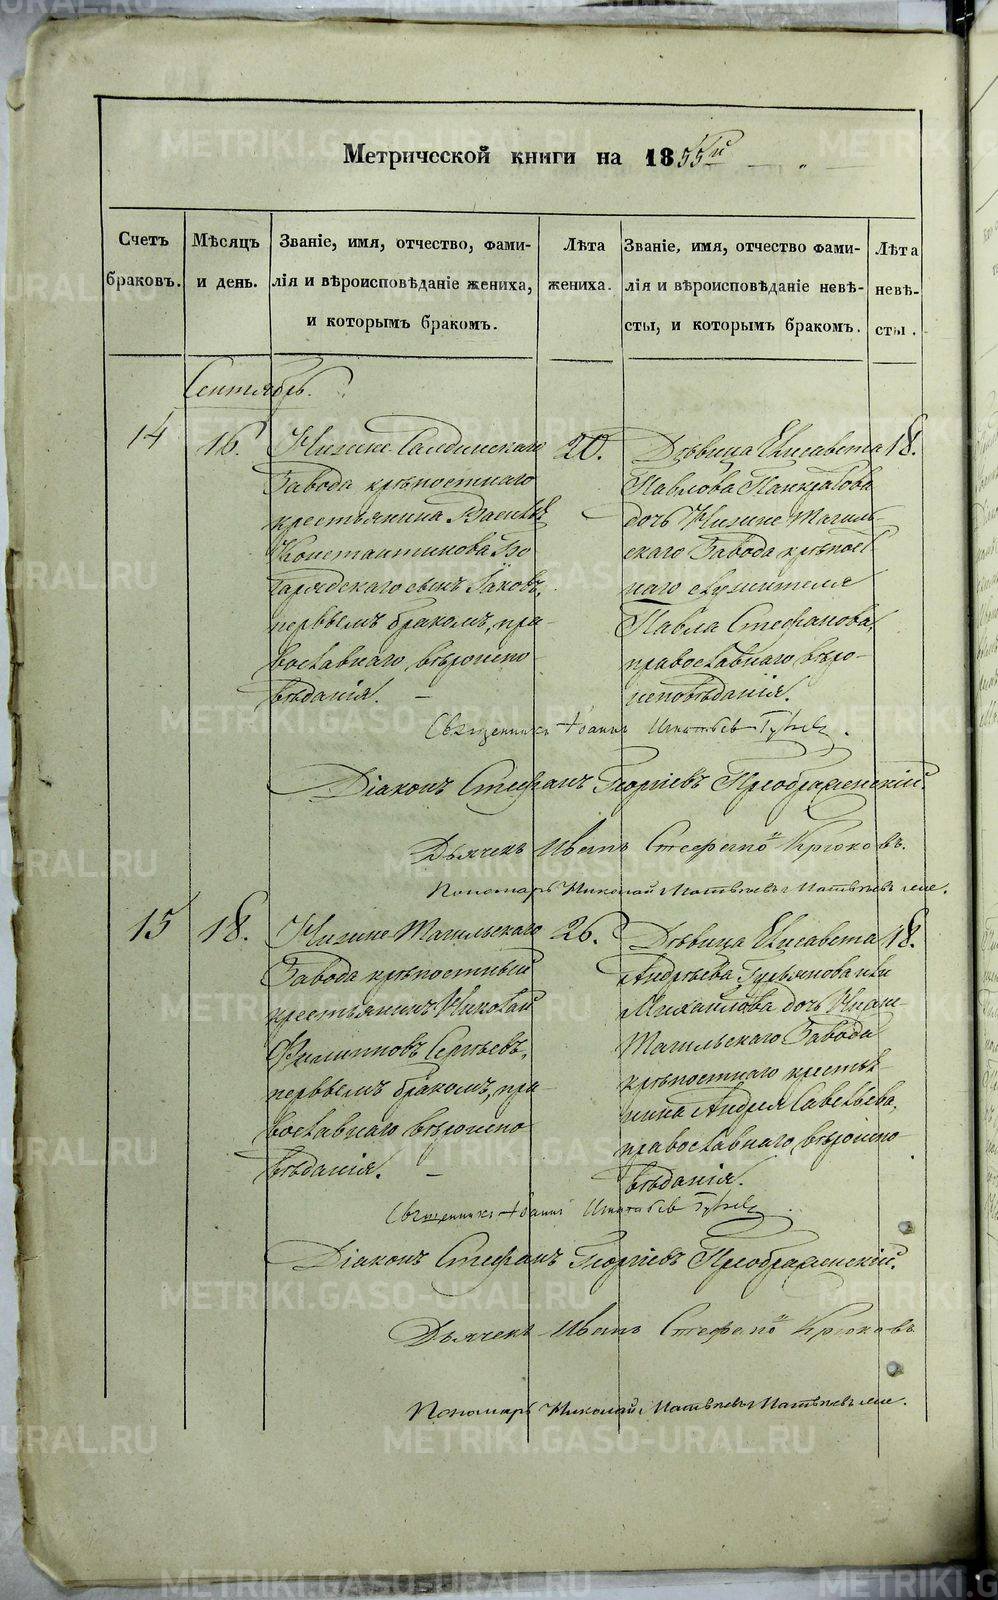 Метрической книги на 1855й
Счетъ браковъ.
Мѣсяцъ и день.
Званіе, имя, отчество, фами-
лія и вѣроисповѣданіе жениха,
и которымъ бракомъ.
Лѣта жениха.
Званіе, имя, отчество фами-
лія и вѣроисповѣданіе невѣ-
сты, и которымъ бракомъ.
Лѣта невѣ-
сты.
Сентябрь.
14
16.
Нижне Салдинскаго
Завода крѣпостнаго
крестьянина Василья
Константинова Бо
гарядскаго сынъ Іаковъ,
первымъ бракомъ, пра
вославнаго вѣроиспо
вѣданія.
20.
Дѣвица Елисавета
Павлова Панкратова
дочь Нижне Тагиль
скаго Завода крѣпост
наго служителя
Павла Стефанова,
православнаго вѣро-
исповѣданія.
18.
Священникъ Іоаннъ Игнатьевъ
Діаконъ Стефанъ Георгіевъ Преображенскій.
Дьячекъ Иванъ Стефановъ Крюковъ.
Пономарь Николай Матвѣевъ
15
18.
Нижне Тагильскаго
Завода крѣпостный
крестьянинъ Николай
Филипповъ Сергѣевъ,
первымъ бракомъ, пра
вославнаго вѣроиспо
вѣданія.
26.
Дѣвица Елисавета
Андреѣва Гурьянова или
Михайлова дочь Нижне
Тагильскаго Завода
крѣпостнаго крестья
нина Андрея Савельева,
православнаго вѣроиспо
вѣданія.
18.
Священникъ Іоаннъ Игнатьевъ
Діаконъ Стефанъ Георгіевъ Преображенскій.
Дьячекъ Иванъ Стефановъ Крюковъ
Пономарь Николай Матвѣевъ
METRIKI.GASO-URAL.RU